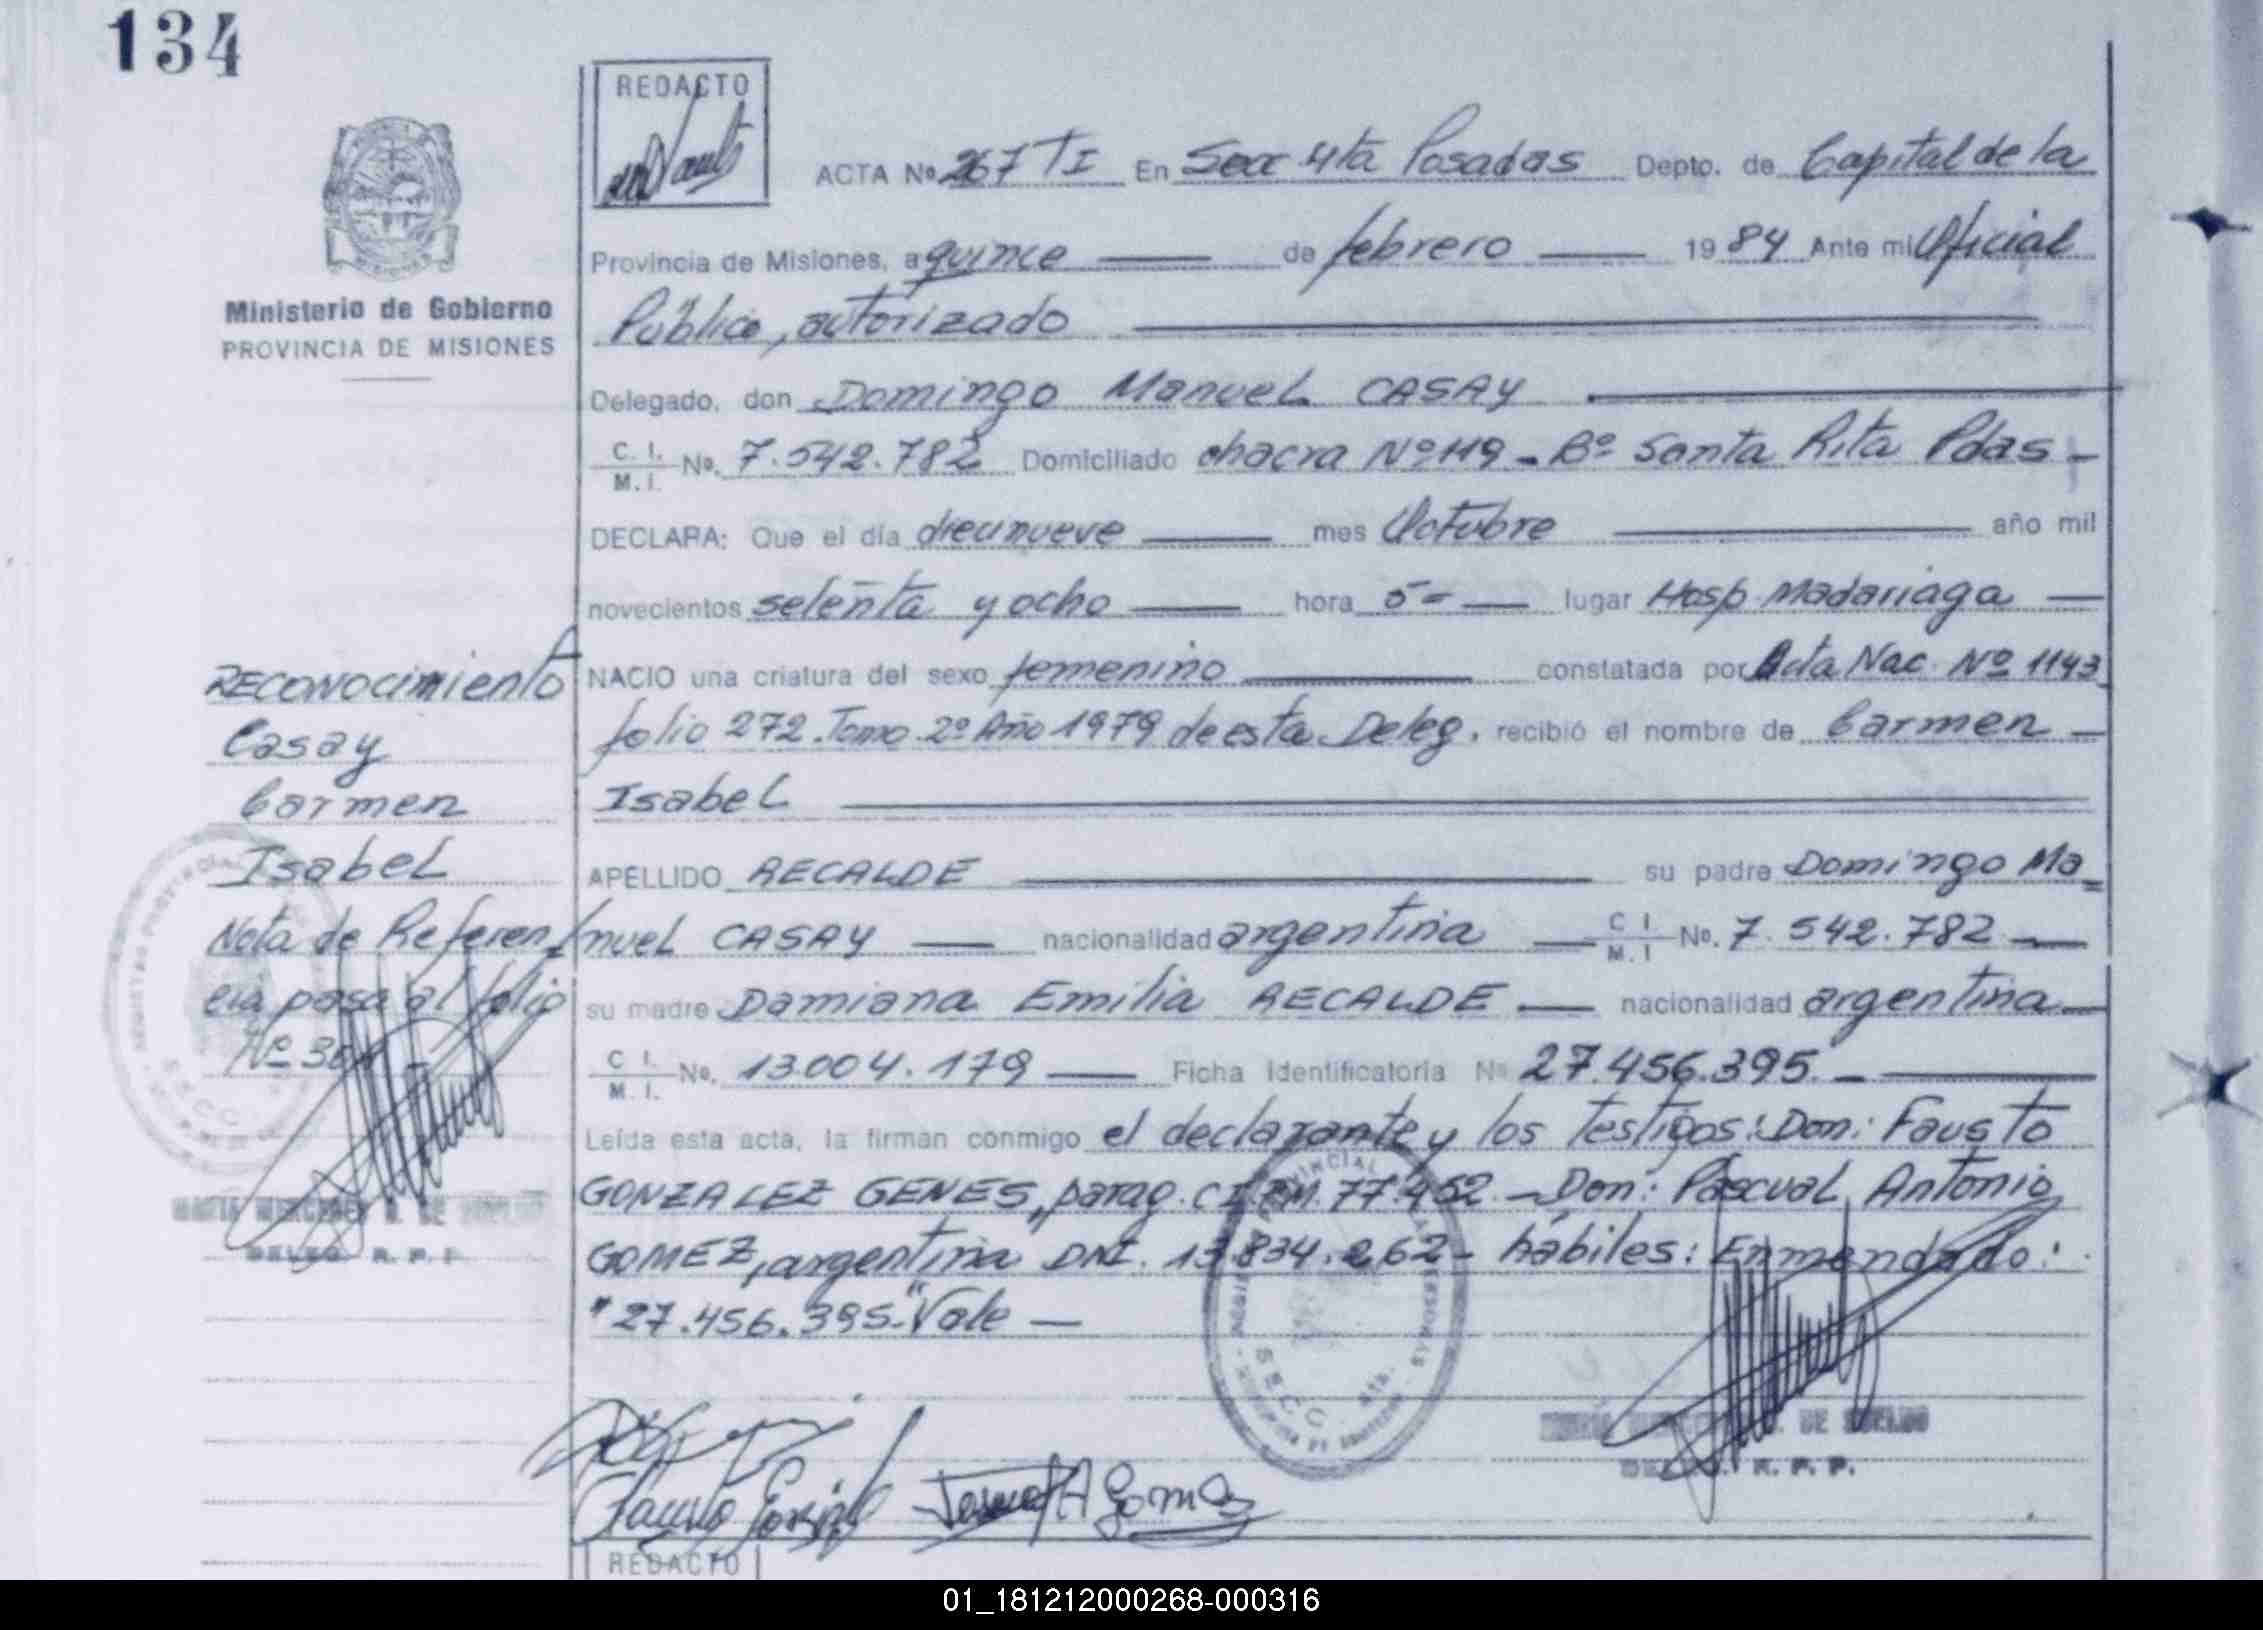 134
REDACTO
ACTA Nº 267 TI En Secc 4ta Posadas Depto. de Capital de la
Provincia de Misiones, a quince de febrero 1984 Ante mi Oficial
Ministerio de Gobierno
PROVINCIA DE MISIONES
Público, autorizado
Delegado, don Domingo Manuel CASAY
C. I. / M. I. Nº. 7.542.782 Domiciliado chacra Nº 119 - Bº Santa Rita Pdas -
DECLARA: Que el día diecinueve mes Octubre año mil
novecientos setenta y ocho hora 5 = lugar Hosp. Madariaga
NACIO una criatura del sexo femenino constatada por Acta Nac. Nº 1143
folio 272. Tomo 2º Año 1979 de esta Deleg. recibió el nombre de Carmen
Isabel
APELLIDO RECALDE su padre Domingo Ma=
nuel CASAY nacionalidad argentina C I / M. I Nº. 7.542.782
su madre Damiana Emilia RECALDE nacionalidad argentina
C I. / M. I. Nº. 13.004.179 Ficha Identificatoria Nº 27.456.395.-
Leída esta acta, la firman conmigo el declarante y los testigos: Don: Fausto
GONZALEZ GENES, parag. CI PM. 77.452 - Don: Pascual Antonio
GOMEZ, argentina DNI. 13.834.262 - hábiles: Enmendado:
"27.456.395" Vale
RECONOCIMIENTO
Casay
Carmen
Isabel
Nota de Referen
cia pasa al folio
Nº
DELEG. R. P. P.
DE SUELDO
DELEG. R. P. P.
SECC. 4ta.
REDACTO
01_181212000268-000316